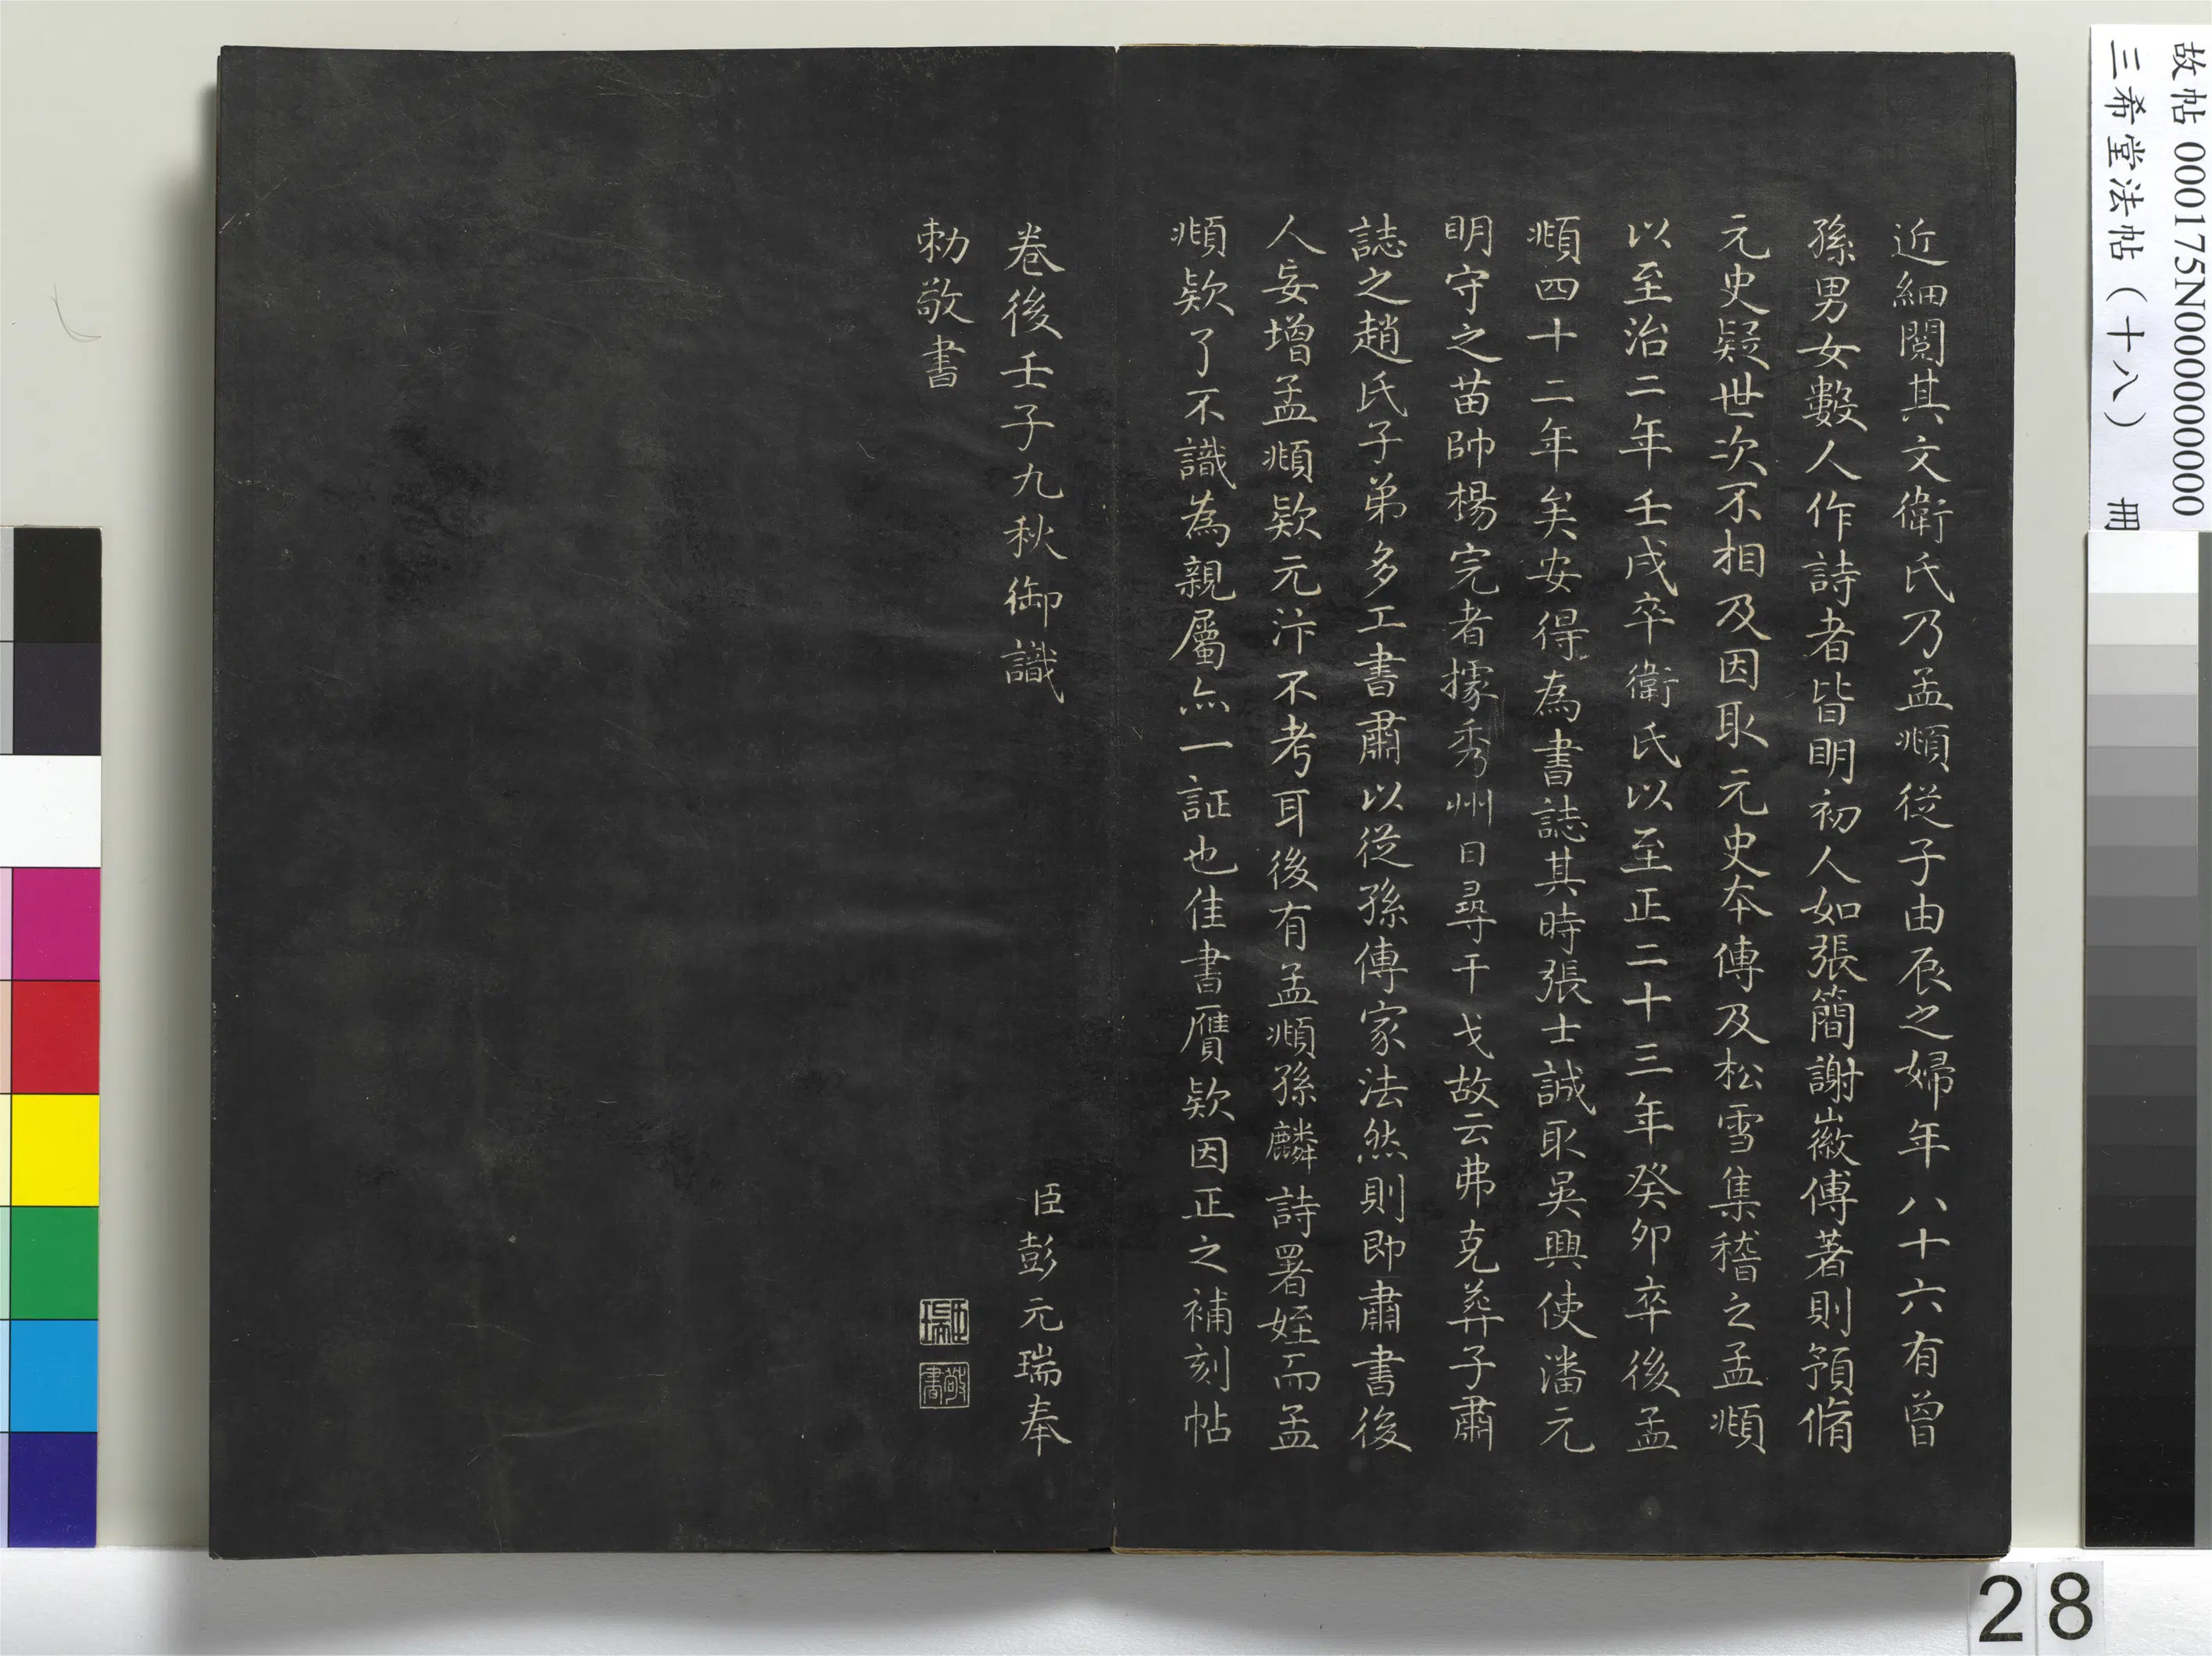 近細閱其文衛氏乃孟頫從子由辰之婦年八十六有曾
孫男女數人作詩者皆明初人如張簡謝徽傅著則預脩
元史疑世次不相及因取元史本傳及松雪集稽之孟頫
以至治二年壬戌卒衛氏以至正二十三年癸卯卒後孟
頫四十二年矣安得為書誌其時張士誠取吳興使潘元
明守之苗帥楊完者據秀州日尋干戈故云弗克葬子肅
誌之趙氏子弟多工書肅以從孫傳家法然則即肅書後
人妄增孟頫欵元汴不考耳後有孟頫孫麟詩署姪而孟
頫欵了不識為親屬亦一証也佳書贗欵因正之補刻帖
卷後壬子九秋御識
臣彭元瑞奉
勅敬書
臣瑞
敬書
故帖 000175N000000000
三希堂法帖（十八） 冊
28